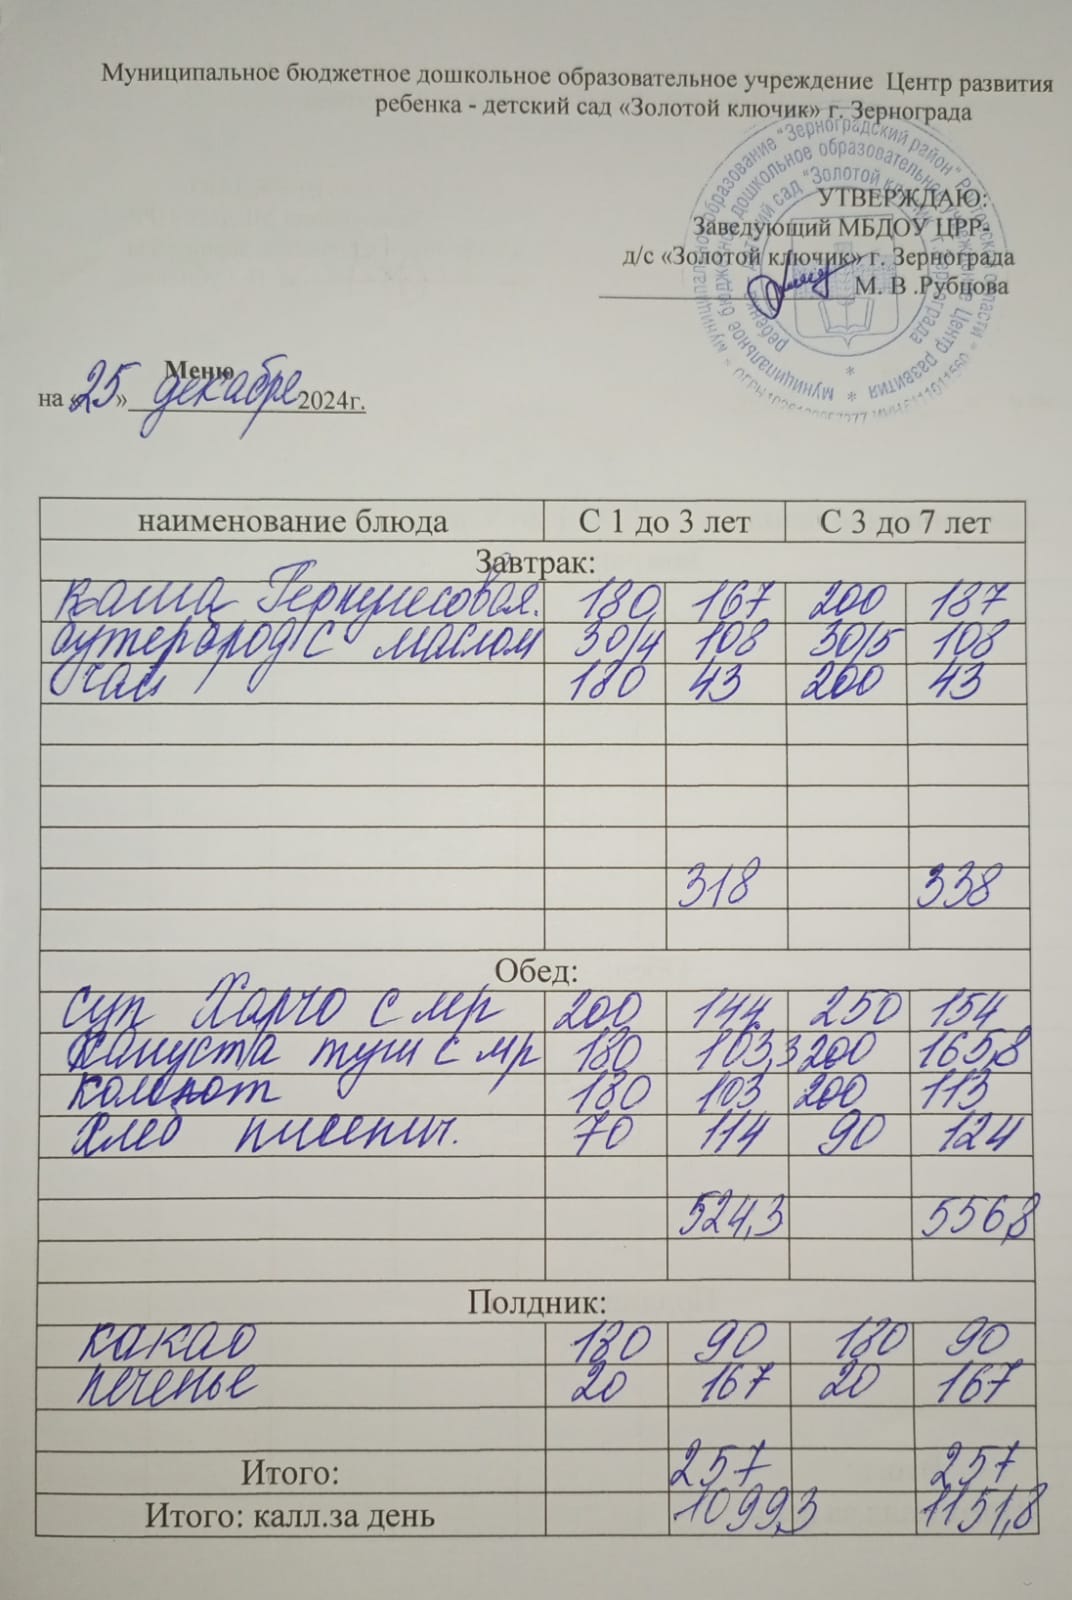 Муниципальное бюджетное дошкольное образовательное учреждение Центр развития
ребенка - детский сад «Золотой ключик» г. Зернограда
УТВЕРЖДАЮ:
Заведующий МБДОУ ЦРР-
д/с «Золотой ключик» г. Зернограда
М. В .Рубцова
Меню
на «25» декабре 2024г.
наименование блюда С 1 до 3 лет С 3 до 7 лет
Завтрак:
каша Геркулесовая. 180 167 200 187
бутерброд с маслом 30/4 108 30/5 108
чай 180 43 200 43
318 338
Обед:
суп Харчо с мр 200 144 250 154
капуста туш с мр 180 103,3 200 165,8
компот 180 103 200 113
хлеб пшенич. 70 114 90 124
524,3 556,8
Полдник:
какао 180 90 180 90
печенье 20 167 20 167
Итого: 257 257
Итого: калл.за день 1099,3 1151,8